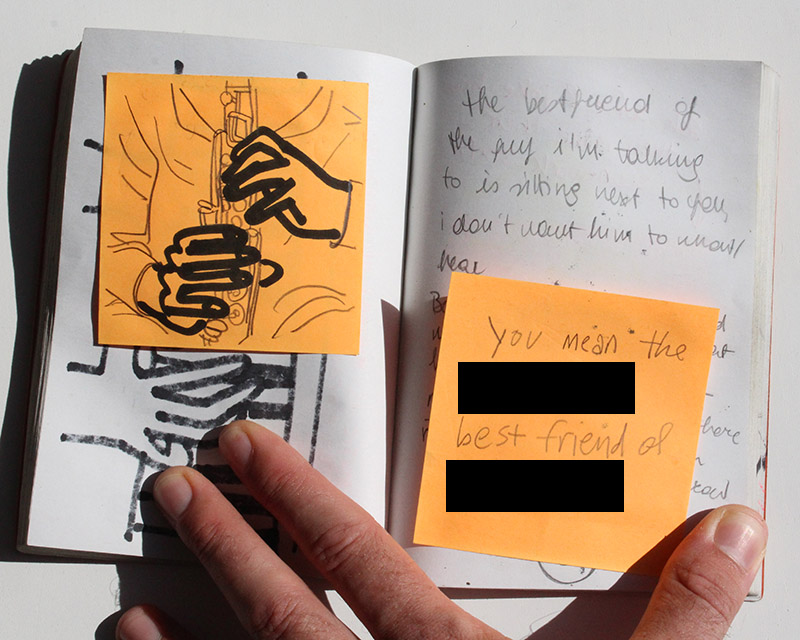 the bestfriend of
the guy i'm talking
to is sitting next to you,
i don't want him to know/
hear
you mean the
best friend of
here